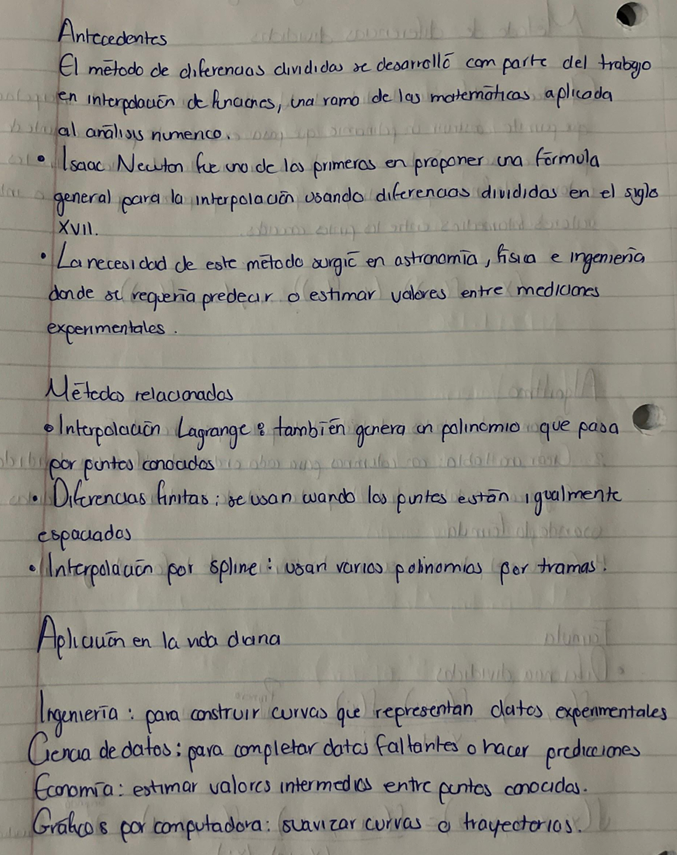 Antecedentes
El método de diferencias divididas se desarrolló com parte del trabajo
en interpolación de funciones, una rama de las matemáticas aplicada
al análisis numerico.
• Isaac Newton fue uno de los primeros en proponer una fórmula
general para la interpolación usando diferencias divididas en el siglo
XVII.
• La necesidad de este método surgió en astronomía, física e ingeniería
donde se requería predecir o estimar valores entre mediciones
experimentales.
Métodos relacionados
• Interpolación Lagrange: también genera un polinomio que pasa
por puntos conocidos
• Diferencias finitas: se usan cuando los puntos están igualmente
espaciados
• Interpolación por spline: usan varios polinomios por tramas.
Aplicación en la vida diaria
Ingeniería: para construir curvas que representan datos experimentales
Ciencia de datos: para completar datos faltantes o hacer predicciones
Economía: estimar valores intermedios entre puntos conocidos.
Gráficos por computadora: suavizar curvas o trayectorias.